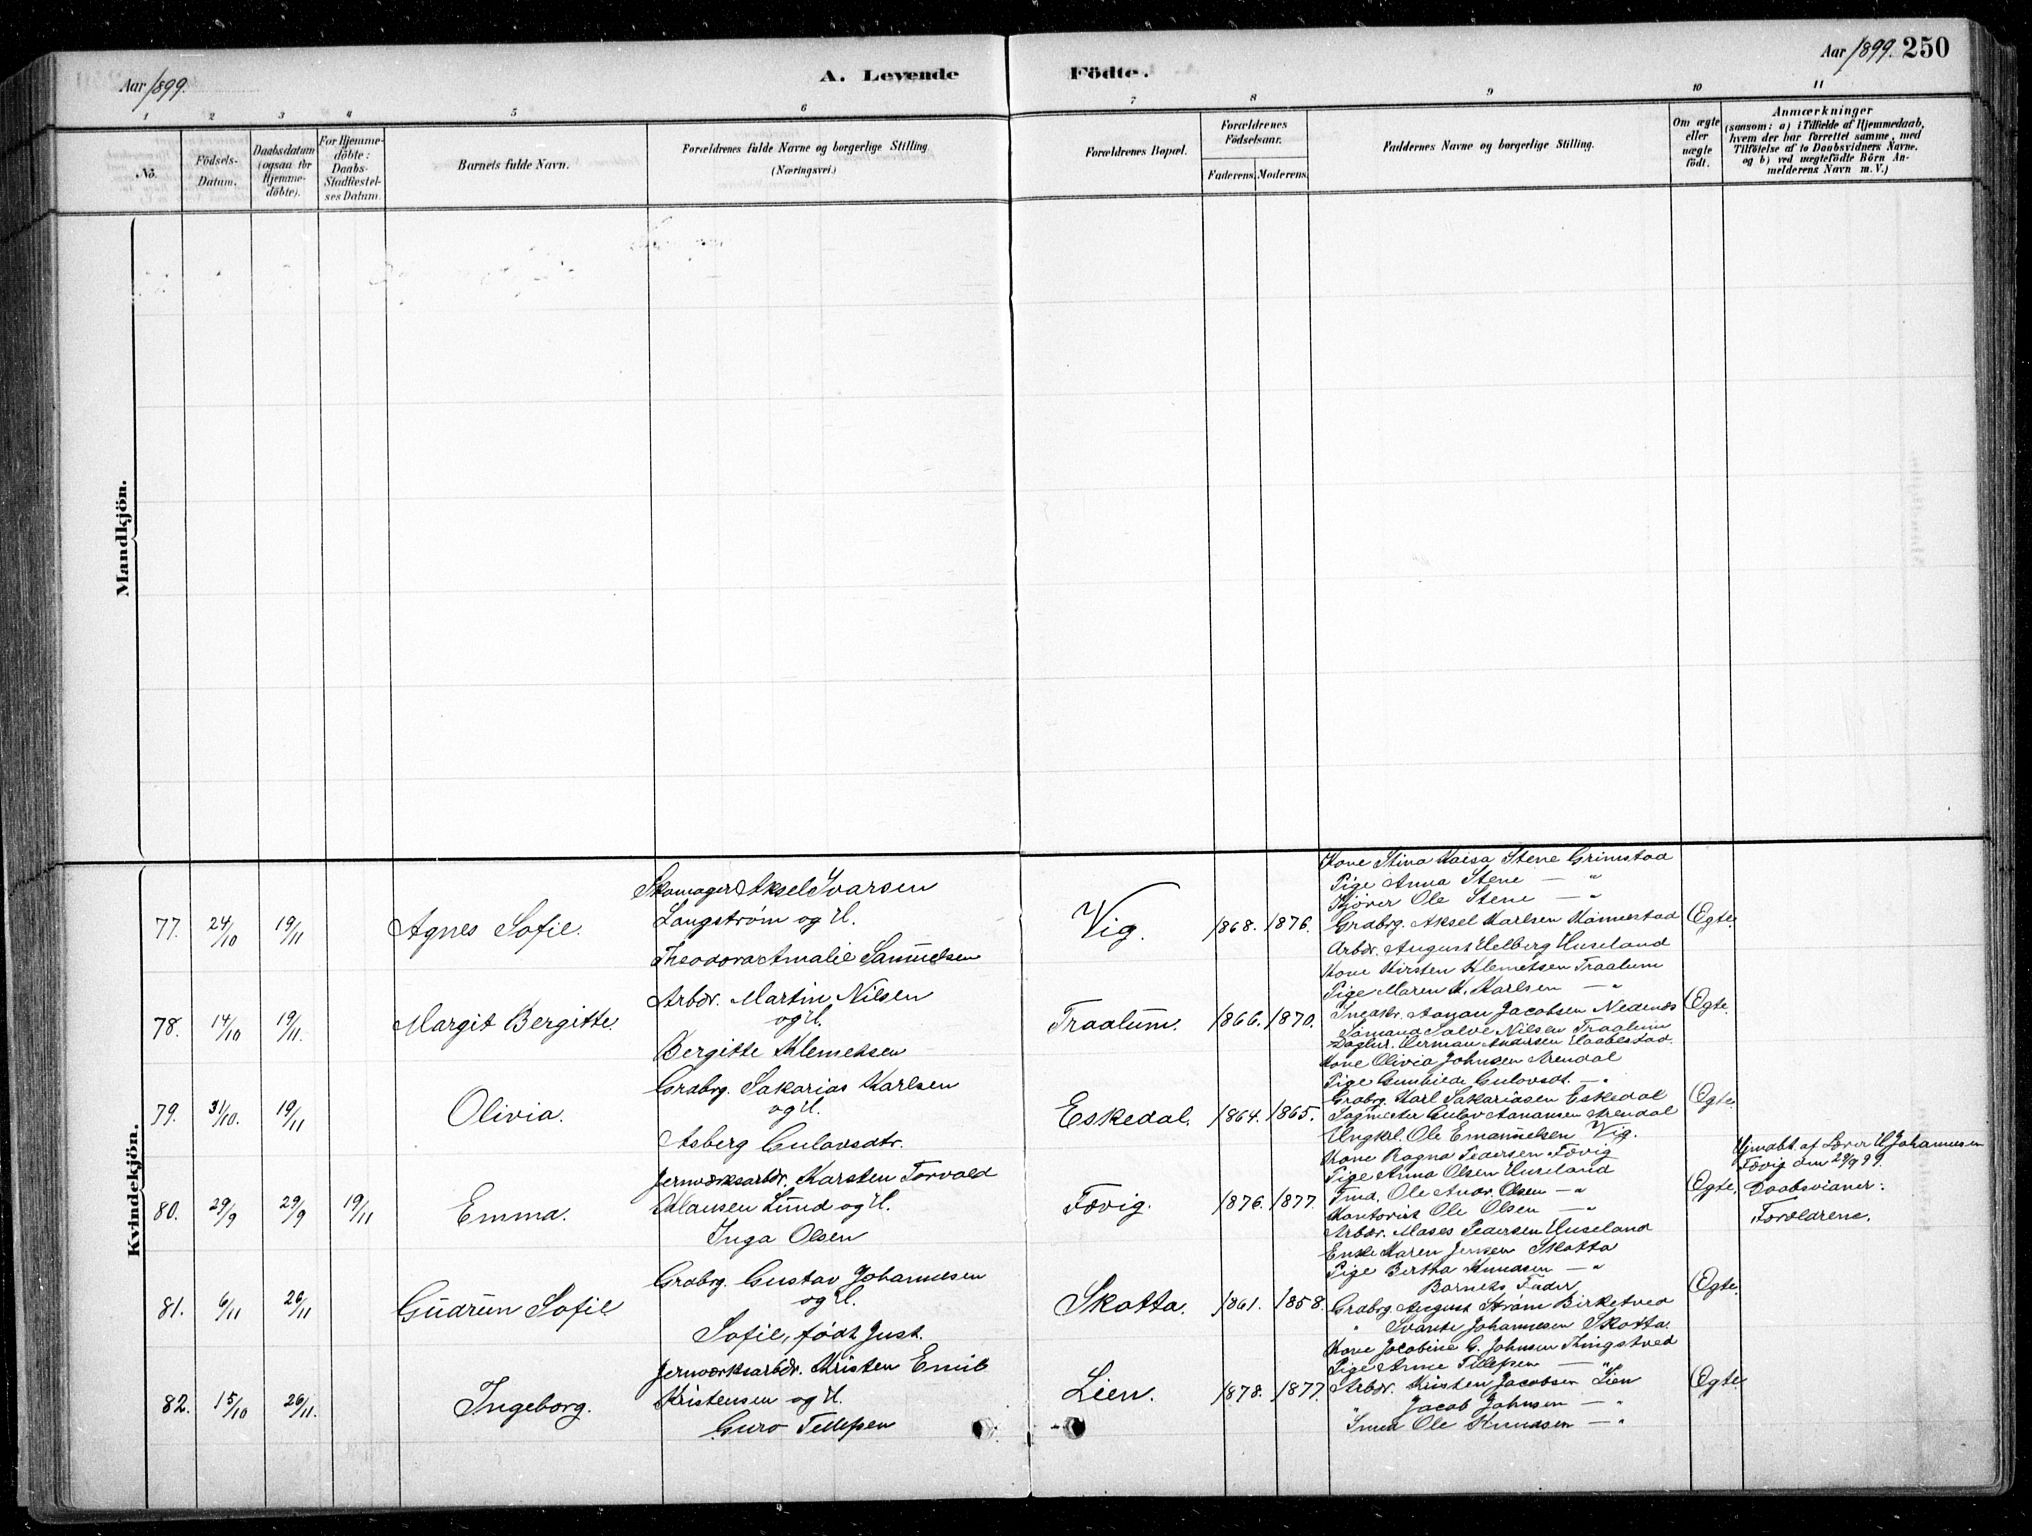 Aar 1899.
A. Levende Födte.
Aar 1899. 250
1 2 3 4 5 6 7 8 9 10 11
No.
Födsels-Datum.
Daabsdatum (ogsaa for Hjemmedöbte).
For Hjemmedöbte: Daabs-Stadfestelses Datum.
Barnets fulde Navn.
Forældrenes fulde Navne og borgerlige Stilling.
(Næringsvei.)
Forældrenes Bopæl.
Forældrenes Födselsaar.
Faderens. Moderens.
Faddernes Navne og borgerlige Stilling.
Om ægte eller uægte født.
Anmærkninger
(saasom: a) i Tilfælde af Hjemmedaab,
hvem der har forrettet samme, med
Tilföielse af to Daabsvidners Navne.
og b) ved uægtefödte Börn An-
melderens Navn m. V.)
Mandkjön.
Kvindekjön.
77. 24/10 19/11 Agnes Sofie.
Skomager Aksel Ivarsen
Langstrøm og H.
Theodora Amalie Samuelsen
Vig. 1868. 1876.
Kone Stina Kaisa Stene Grimstad
Pige Anna Stene — "
Kjører Ole Stene — "
Grabrg. Aksel Karlsen
Arbdr. August Helberg Huseland
Ægte.
78. 14/10 19/11. Margit Bergitte.
Arbdr. Martin Nilsen
og H.
Bergitte Klemetsen
Traalum. 1866. 1870.
Kone Kirsten Klemetsen Traalum
Pige Maren K. Karlsen — "
Aanan Jacobsen Nedenæs
Sømand Salve Nilsen Traalum
Herman Andersen
Ægte.
79. 31/10. 19/11 Olivia.
Grabrg. Sakarias Karlsen
og H.
Asberg Gulovsdtr.
Eskedal. 1864. 1865.
Kone Olivia Johnsen Arendal
Pige Gunhilde Gulovsdt. — "
Grabrg. Karl Sakariasen Eskedal
Gulov Aanansen Arendal
Ungkrl. Ole Emanuelsen Vig.
Ægte.
80. 29/9 29/9 19/11 Emma.
Jernværksarbdr. Karsten Torvald
Klausen Lund og H.
Inga Olsen
Fævig. 1876. 1877.
Kone Ragna Pedersen Fævig
Pige Anna Olsen Huseland
Ole Andr. Olsen — "
Kontorist Ole Olsen — "
Arbdr. Moses Pedersen Huseland
Ægte.
Hjmdbt. af Lærer H. Johannesen
Fævig den 29/9 99.
Daabsvidner:
Forældrene.
81. 6/11 26/11 Gudrun Sofie
Grabrg. Gustav Johannesen
og H.
Sofie, født Just.
Skotta. 1861. 1858.
Enke Karen Jensen Skotta
Pige Bertha Knudsen — "
Barnets Fader
Grabrg August Strøm Birketved
" Svante Johannesen Skotta.
Ægte.
82. 15/10 26/11. Ingeborg.
Jernværksarbdr. Kristen Emil
Kristensen og H.
Guro Tellefsen
Lien. 1878. 1877.
Kone Jacobine G. Johnsen Tingstved
Pige Anne Tellefsen — "
Arbdr. Kristen Jacobsen Lien
" Jacob Johnsen — "
Ole Knudsen — "
Ægte.